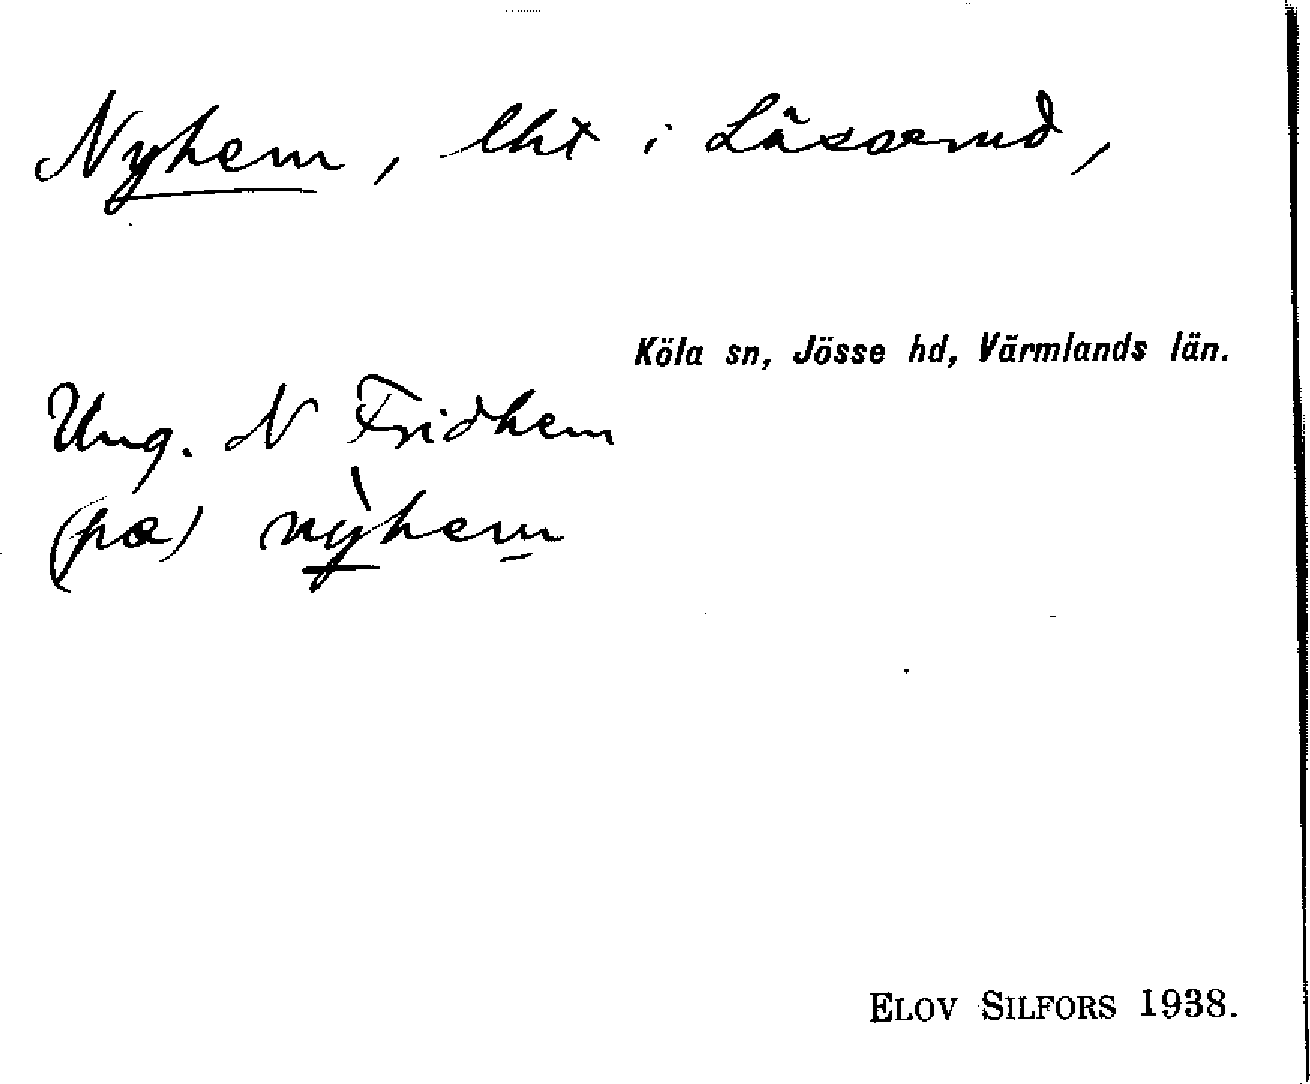 Nyhem, lht i Lässerud,
Köla sn, Jösse hd, Värmlands län.
Ung. N Fridhem
(pæ) nỳhem
ELOV SILFORS 1938.